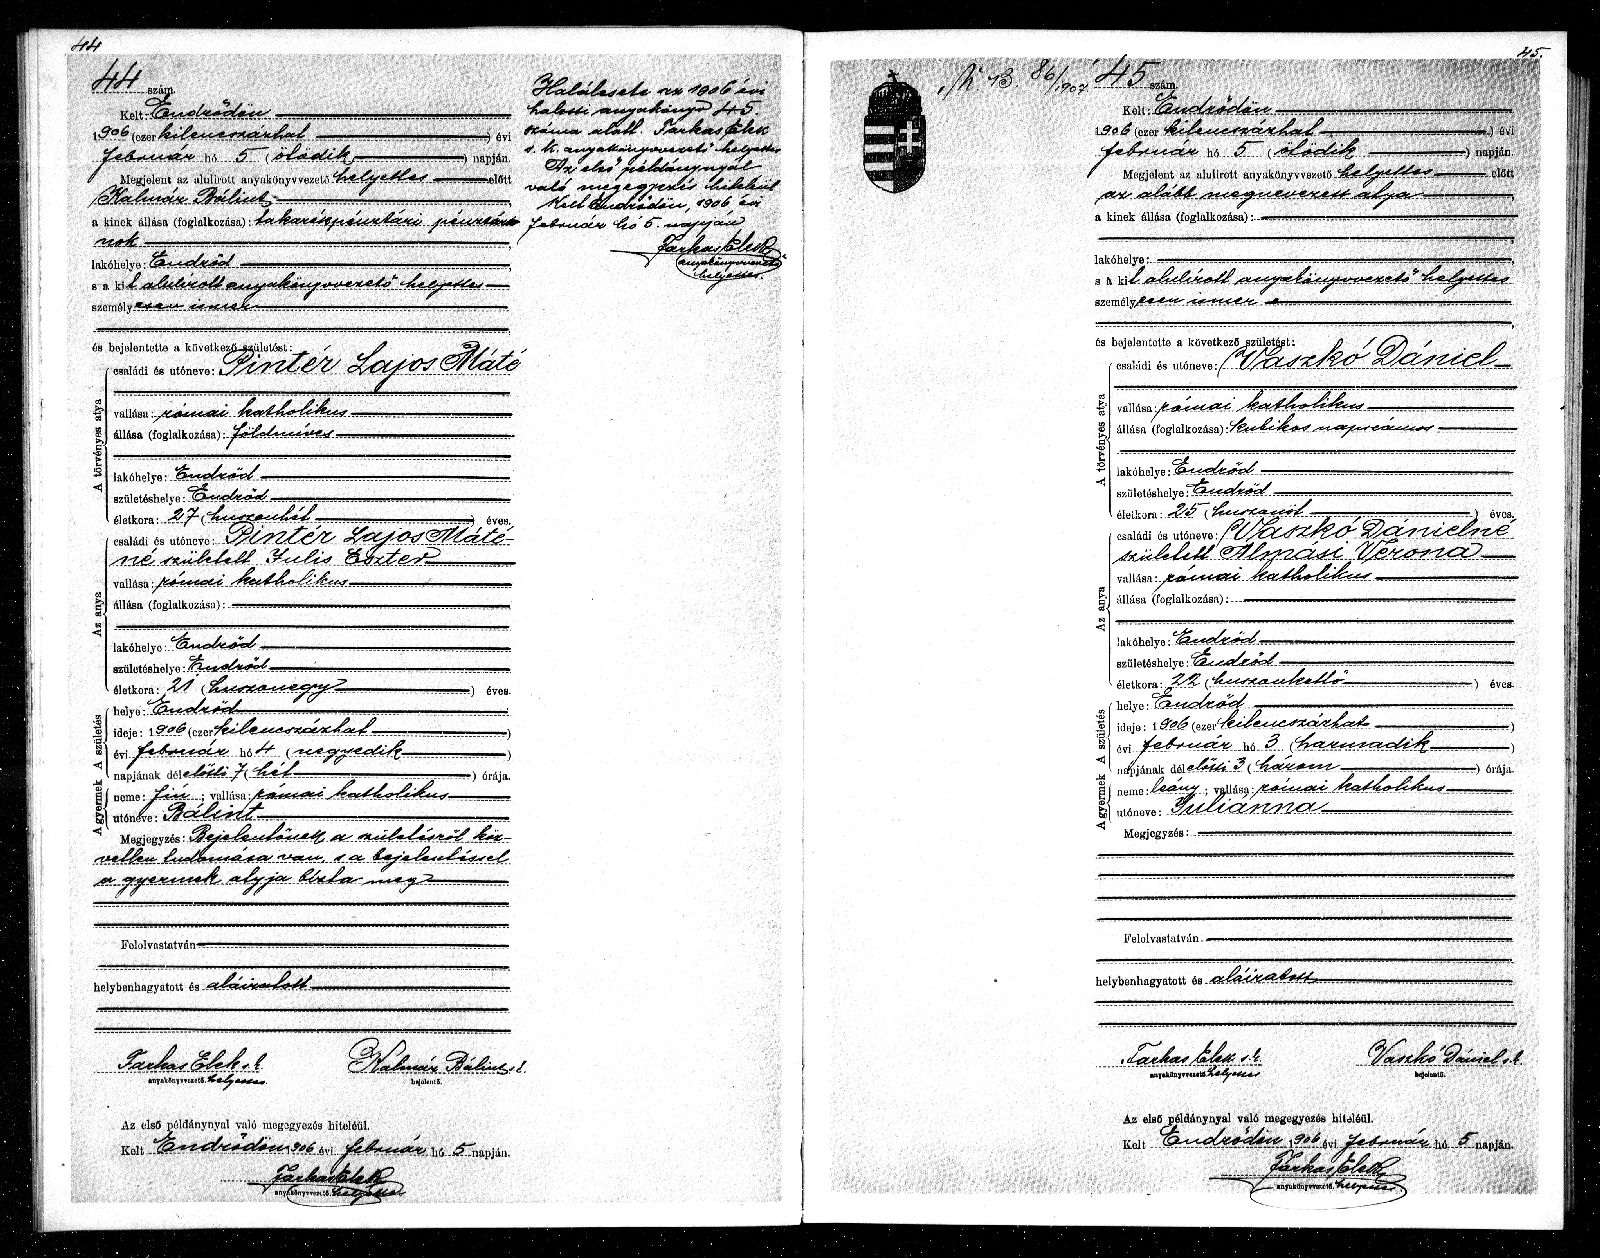 44
44 szám
Kelt Endrődön
1906 (ezer kilencszázhat ) évi
február hó 5 (ötödik ) napján.
Megjelent az alulirott anyakönyvvezető helyettes előtt
Kalmár Bálint,
a kinek állása (foglalkozása): takarékpénztári pénztár
nok
lakóhelye: Endrőd
s a kit alulírott anyakönyvvezető helyettes
személyesen ismer
és bejelentette a következő születést:
A törvényes atya
családi és utóneve: Pintér Lajos Máté
vallása: római katholikus
állása (foglalkozása): földmíves
lakóhelye: Endrőd
születéshelye: Endrőd
életkora: 27 (huszonhét ) éves.
Az anya
családi és utóneve: Pintér Lajos Máté-
né született Iulis Eszter
vallása: római katholikus
állása (foglalkozása):
lakóhelye: Endrőd
születéshelye: Endrőd
életkora: 21 (huszonegy ) éves.
A születés
helye: Endrőd
ideje: 1906 (ezer kilencszázhat )
évi február hó 4 (negyedik )
napjának délelőtti 7 (hét ) órája.
A gyermek
neme: fiú ; vallása: római katholikus
utóneve: Bálint
Megjegyzés: Bejelentőnek a születésről köz-
vetlen tudomása van, s a bejelentéssel
a gyermek atyja bízta meg
Felolvastatván
helybenhagyatott és aláíratott
Farkas Elek s. k. Kalmár Bálint s. k.
anyakönyvvezető helyettes bejelentő.
Az első példánynyal való megegyezés hiteléül.
Kelt Endrődön 1906 évi február hó 5 napján.
Farkas Elek
anyakönyvvezető helyettes
Halálesete az 1906 évi
halotti anyakönyv 45.
száma alatt. Farkas Elek
s. k. anyakönyvvezető helyettes
Az első példánynyal
való megegyezés hiteléül
Kelt Endrődön, 1906 évi
február hó 5. napján
Farkas Elek
anyakönyvvezető
helyettes
45.
13 86/1907
45 szám.
Kelt: Endrődön
1906 (ezer kilencszázhat ) évi
február hó 5 (ötödik ) napján.
Megjelent az alulirott anyakönyvvezető helyettes előtt
az alább megnevezett atya
a kinek állása (foglalkozása):
lakóhelye:
s a kit alulírott anyakönyvvezető helyettes
személyesen ismer
és bejelentette a következő születést:
A törvényes atya
családi és utóneve: Vaszkó Dániel
vallása: római katholikus
állása (foglalkozása): kubikos napszámos
lakóhelye: Endrőd
születéshelye: Endrőd
életkora: 25 (huszonöt ) éves.
Az anya
családi és utóneve: Vaszkó Dánielné
született Almási Verona
vallása: római katholikus
állása (foglalkozása):
lakóhelye: Endrőd
születéshelye: Endrőd
életkora: 22 (huszonkettő ) éves.
A születés
helye: Endrőd
ideje: 1906 (ezer kilencszázhat )
évi február hó 3 (harmadik )
napjának délelőtti 3 (három ) órája.
A gyermek
neme: leány ; vallása: római katholikus
utóneve: Juliánna
Megjegyzés:
Felolvastatván
helybenhagyatott és aláíratott
Farkas Elek s. k. Vaszkó Dániel s. k.
anyakönyvvezető helyettes bejelentő.
Az első példánynyal való megegyezés hiteléül.
Kelt Endrődön 1906 évi február hó 5 napján.
Farkas Elek
anyakönyvvezető helyettes